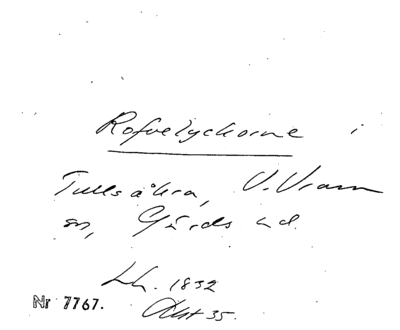 Rofvelyckorne i
Tullsåkra, V. Vram
sn, Gärds hd.
Lh. 1832
Akt 35.
Nr 7767.